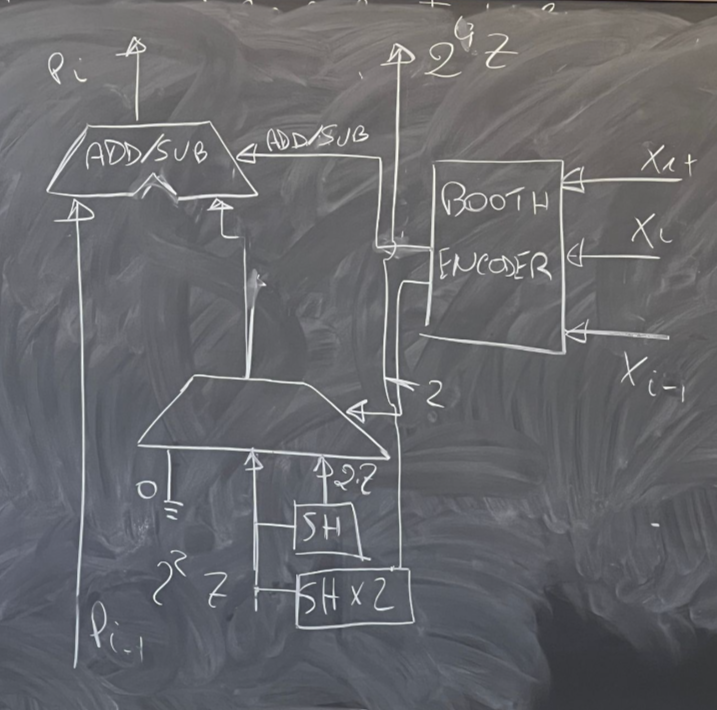 Pi
2^4 Z
ADD/SUB
ADD/SUB
BOOTH
ENCODER
Xi+
Xi
Xi-1
2
0
2·Z
SH
2^2 Z
SH x 2
Pi-1